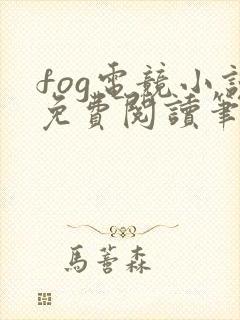 fog電競小說
免費閱讀筆
馬薈森